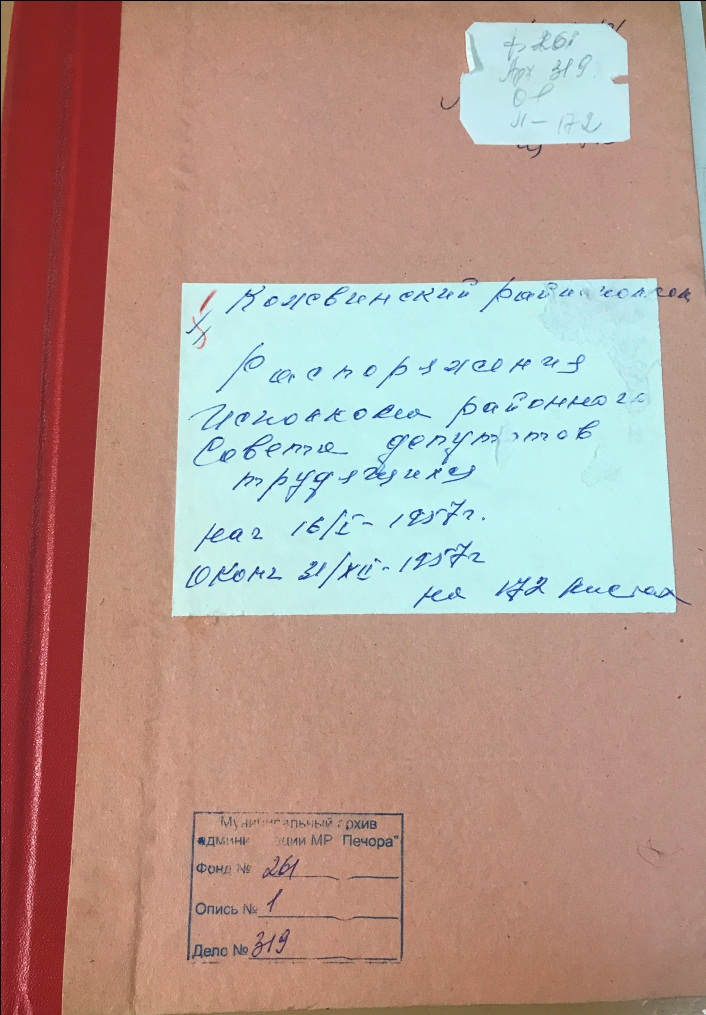 ф 261
Арх 319
О1
Л – 172
Кожвинский райисполком
Распоряжения
Исполкома районного
Совета депутатов
трудящихся
нач 16/I – 1957г.
Оконч 31/XII - 1957г
на 172 листах
Муниципальный архив
администрации МР "Печора"
Фонд № 261
Опись № 1
Дело № 319